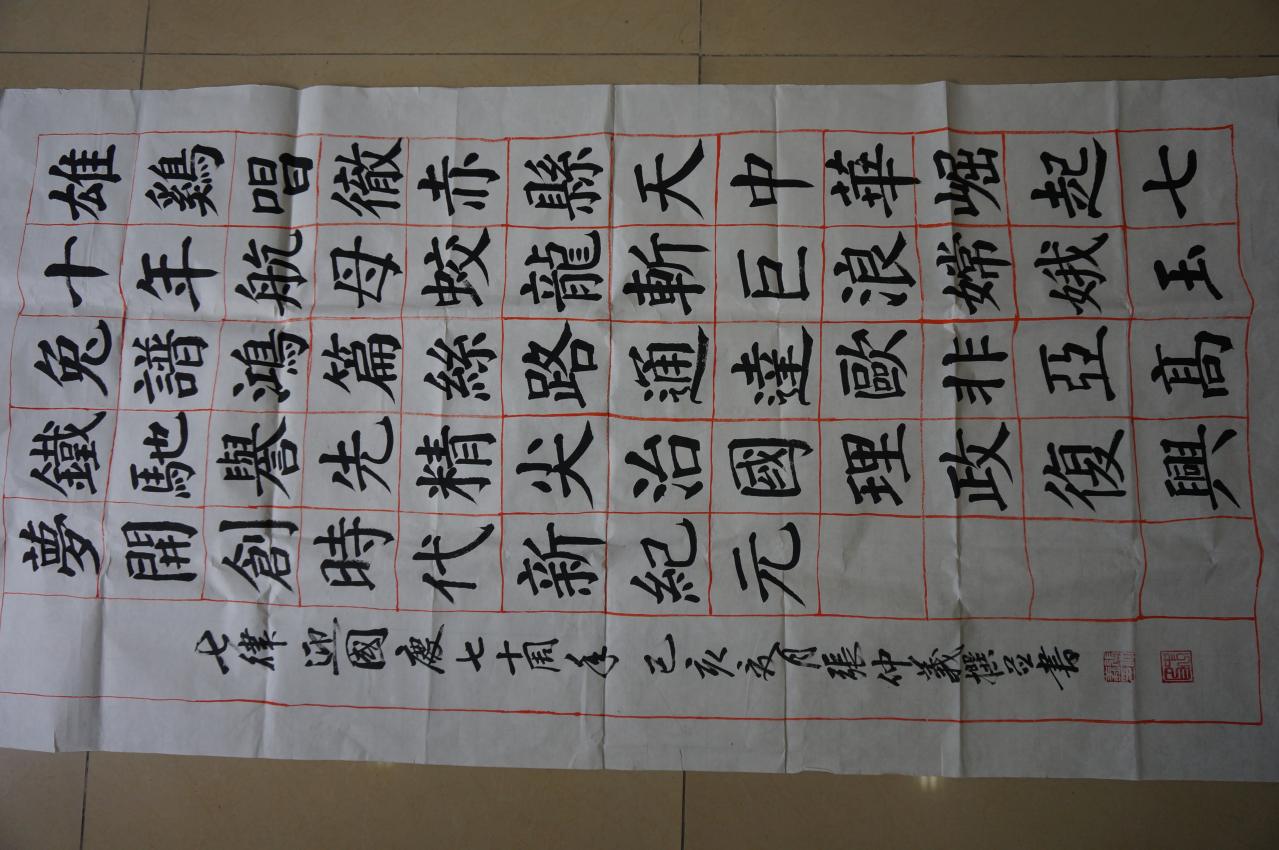 雄鷄唱徹赤縣天中華崛起七
十年航母蛟龍斬巨浪嫦娥玉
兔譜鴻篇絲路通達歐非亞高
鐵馳譽先精尖治國理政復興
夢開創時代新紀元
七律迎國慶七十周年己亥夏月張仲義撰並書